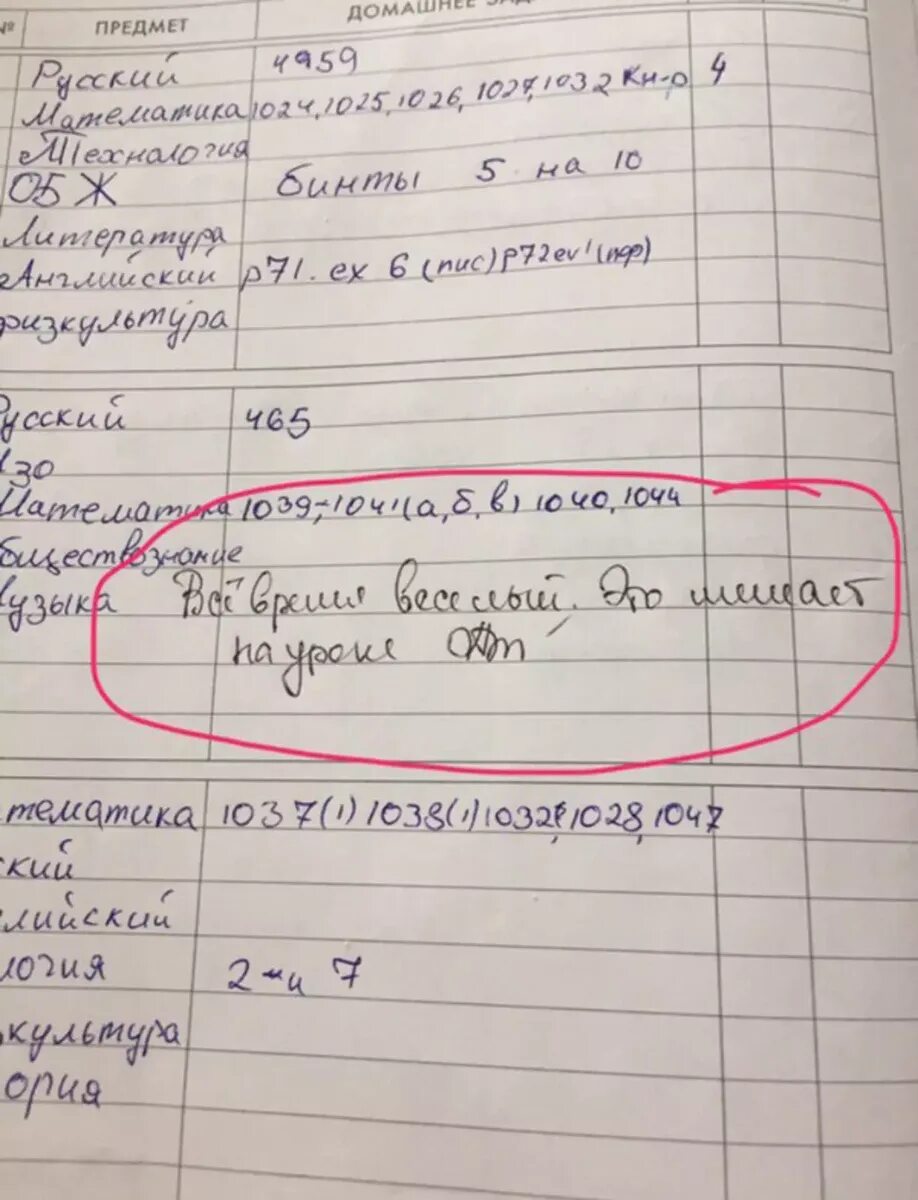 № ПРЕДМЕТ ДОМАШНЕЕ ЗАД
Русский 4959
Математика 1024, 1025, 1026, 1027, 1032 Кн-р 4
Технология
ОБЖ бинты 5 на 10
Литература
Английский p71. ex 6 (пис) p72 ev1 (пер)
физкультура
Русский 465
ИЗО
Математика 1039, 1041(а,б,в) 1040, 1044
бществознание
Музыка Всё время веселый. Это мешает
на уроке
тематика 1037(1) 1038(1) 1032 1028, 1047
ский
лийский
логия 2 и 7
культура
ория